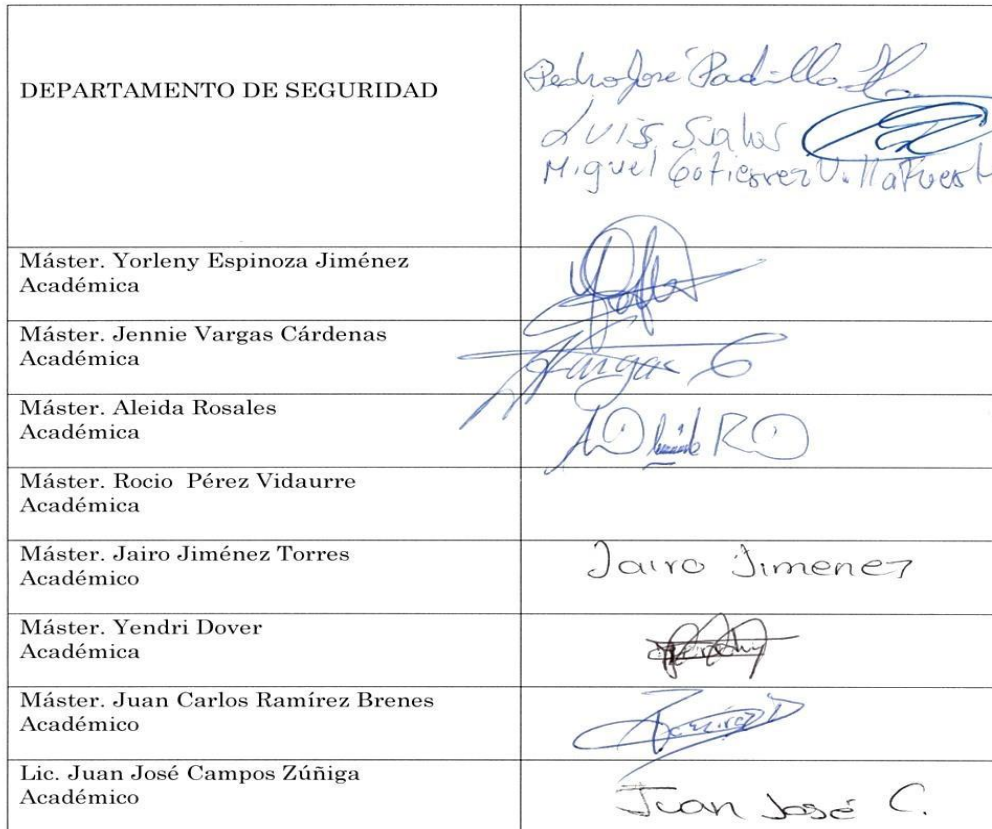 DEPARTAMENTO DE SEGURIDAD
Pedro José Padilla
Luis Salas
Miguel Gotierrez
Máster. Yorleny Espinoza Jiménez
Académica
Máster. Jennie Vargas Cárdenas
Académica
Vargas C
Máster. Aleida Rosales
Académica
Máster. Rocio Pérez Vidaurre
Académica
Máster. Jairo Jiménez Torres
Académico
Jairo Jimenez
Máster. Yendri Dover
Académica
Máster. Juan Carlos Ramírez Brenes
Académico
Lic. Juan José Campos Zúñiga
Académico
Juan José C.